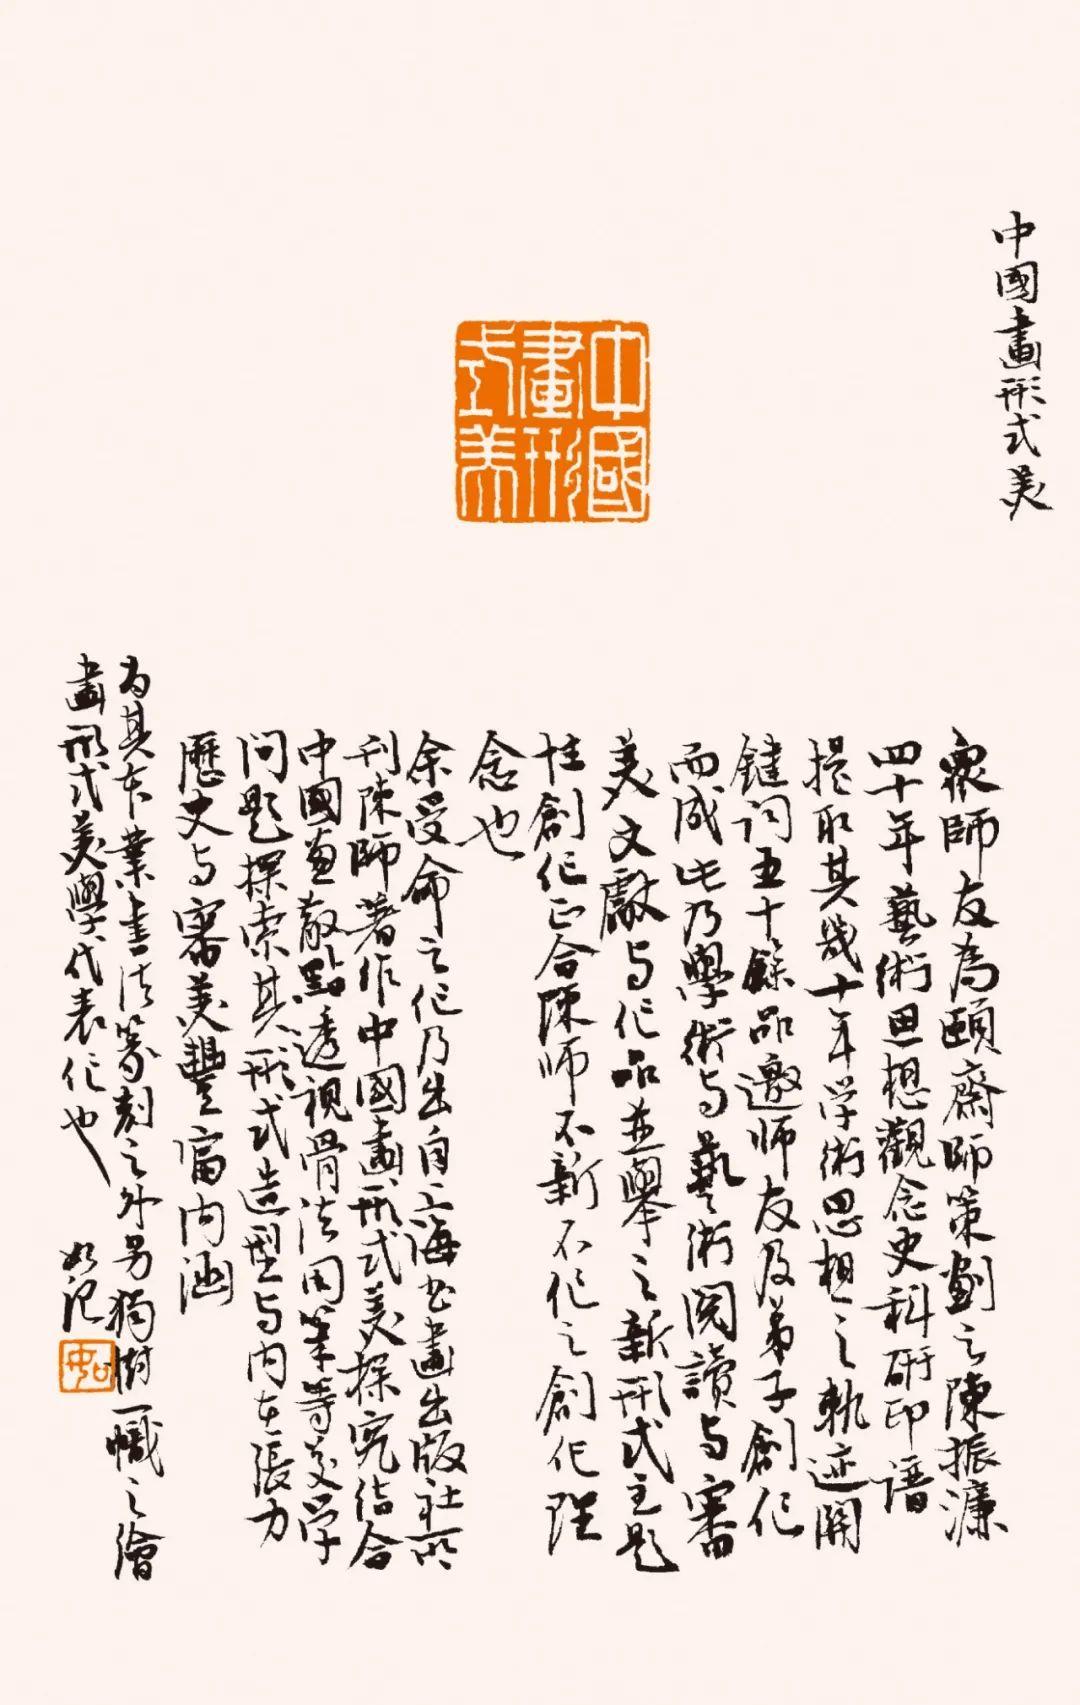 中國畫形式美
中國
畫形
式美
衆師友為頤齋師策劃之陳振濂
四十年藝術思想觀念史科研印譜
提取其幾十年学術思想之軌迹関
鍵词五十餘品邀师友及弟子創作
而成此乃學術与藝術閲讀与審
美文獻与作品並舉之新形式主題
性創作正合陳师不新不作之創作理
念也
余受命之作乃出自上海书畫出版社所
刊陳師著作中國畫形式美探究结合
中國畫散點透視骨法用筆等多学
问題探索其形式造型与内在張力
歷史与審美豐富内涵
为其本業書法篆刻之外另獨樹一幟之繪
畫形式美學代表作也